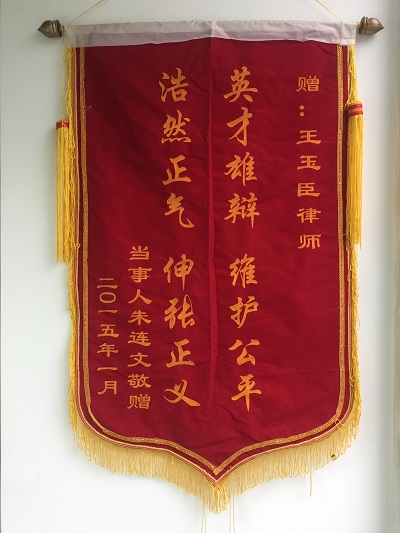 赠：王玉臣律师
英才雄辩 维护公平
浩然正气 伸张正义
当事人朱连文敬赠
二〇一五年一月